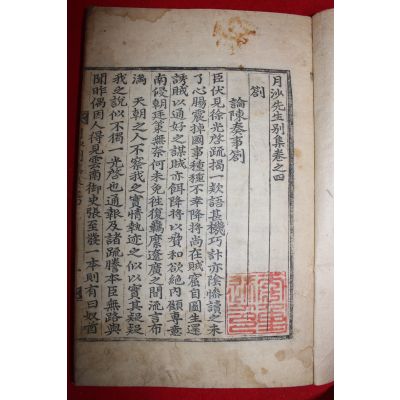 月沙先生別集卷之四
劄
論陳奏事劄
臣伏見徐光啓疏揭一款語甚機巧計亦陰慘讀之未
了心腸震掉國事種種不幸降將尚在賊窟自圖生還
誘賊以通好之謀賊亦餌降將以貲和欲絶內顧專意
南侵朝廷策無奈何未免往復羈縻遼廣之間流言布
滿 天朝之人不察我之實情執迹之似以實其疑
我之說似不獨一光啓也通報及諸疏謄本臣無路與
聞昨偶因人得見雲南御史張至發一本則有曰奴酋